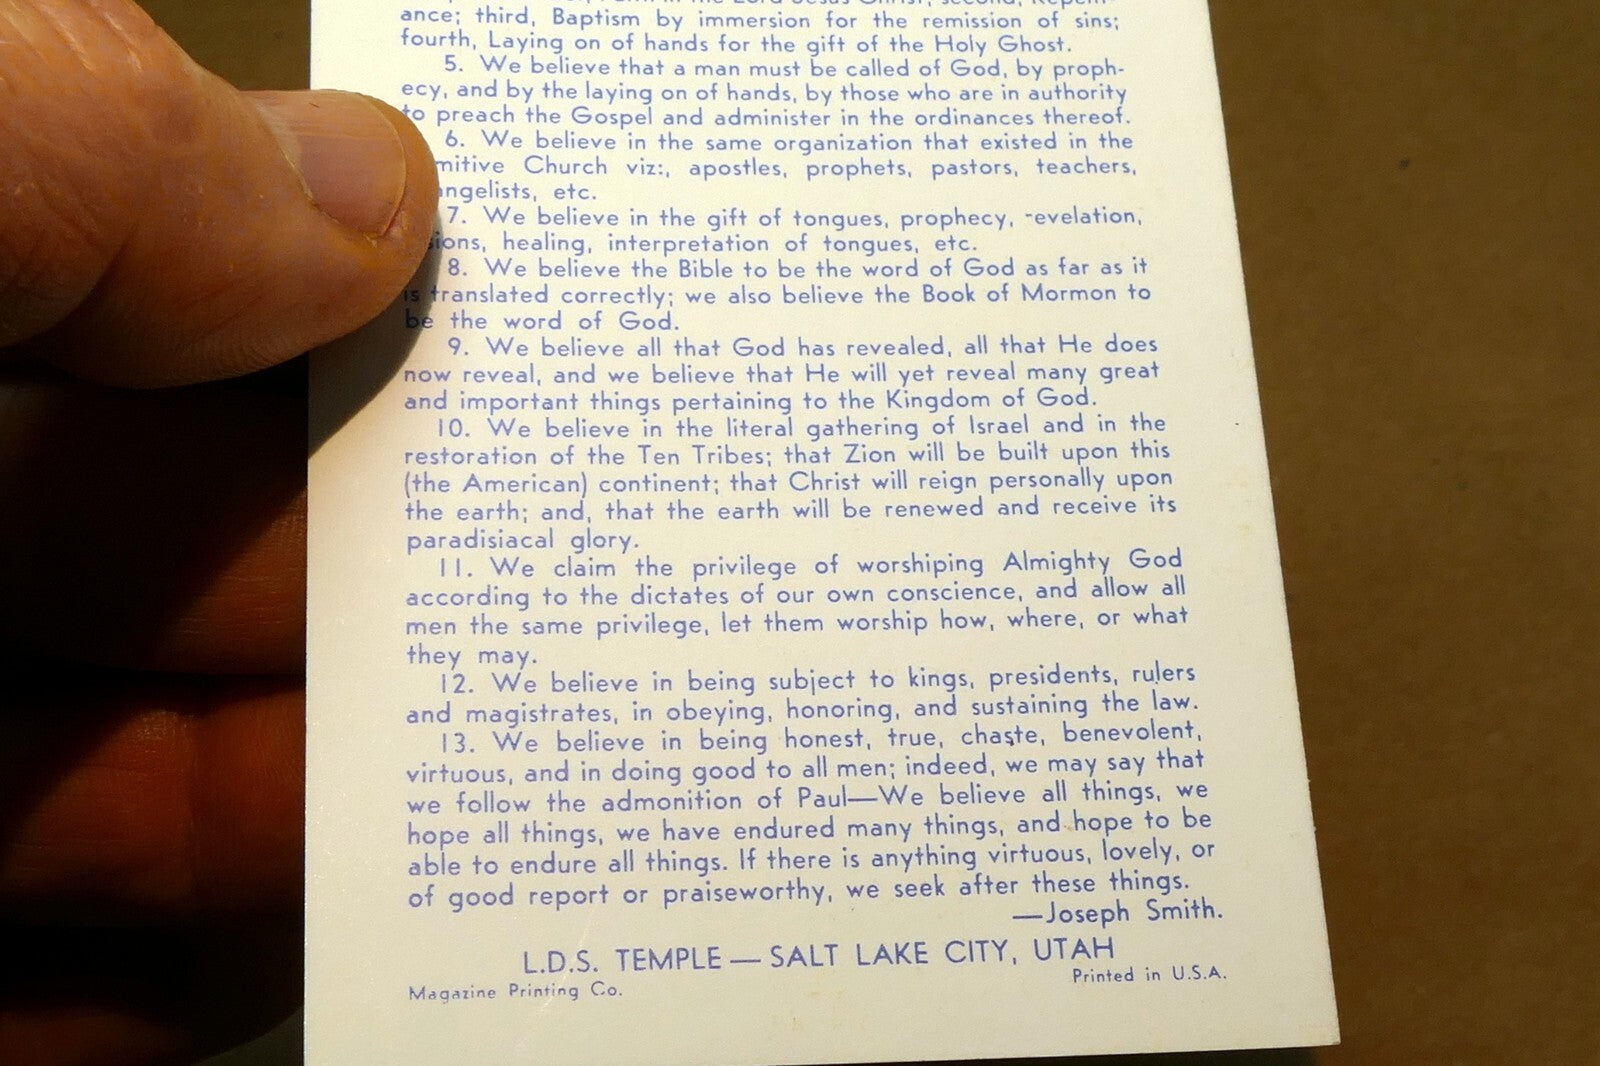 ance; third, Baptism by immersion for the remission of sins;
fourth, Laying on of hands for the gift of the Holy Ghost.
5. We believe that a man must be called of God, by proph-
ecy, and by the laying on of hands, by those who are in authority
to preach the Gospel and administer in the ordinances thereof.
6. We believe in the same organization that existed in the
mitive Church viz:, apostles, prophets, pastors, teachers,
angelists, etc.
7. We believe in the gift of tongues, prophecy, -evelation,
sions, healing, interpretation of tongues, etc.
8. We believe the Bible to be the word of God as far as it
is translated correctly; we also believe the Book of Mormon to
be the word of God.
9. We believe all that God has revealed, all that He does
now reveal, and we believe that He will yet reveal many great
and important things pertaining to the Kingdom of God.
10. We believe in the literal gathering of Israel and in the
restoration of the Ten Tribes; that Zion will be built upon this
(the American) continent; that Christ will reign personally upon
the earth; and, that the earth will be renewed and receive its
paradisiacal glory.
11. We claim the privilege of worshiping Almighty God
according to the dictates of our own conscience, and allow all
men the same privilege, let them worship how, where, or what
they may.
12. We believe in being subject to kings, presidents, rulers
and magistrates, in obeying, honoring, and sustaining the law.
13. We believe in being honest, true, chaste, benevolent,
virtuous, and in doing good to all men; indeed, we may say that
we follow the admonition of Paul—We believe all things, we
hope all things, we have endured many things, and hope to be
able to endure all things. If there is anything virtuous, lovely, or
of good report or praiseworthy, we seek after these things.
—Joseph Smith.
L.D.S. TEMPLE — SALT LAKE CITY, UTAH
Printed in U.S.A.
Magazine Printing Co.